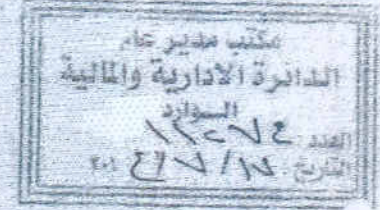 مكتب مدير عام
الدائرة الادارية والمالية
السوارد
العدد
التاريخ: ١٧ / ٧ ٢٠١